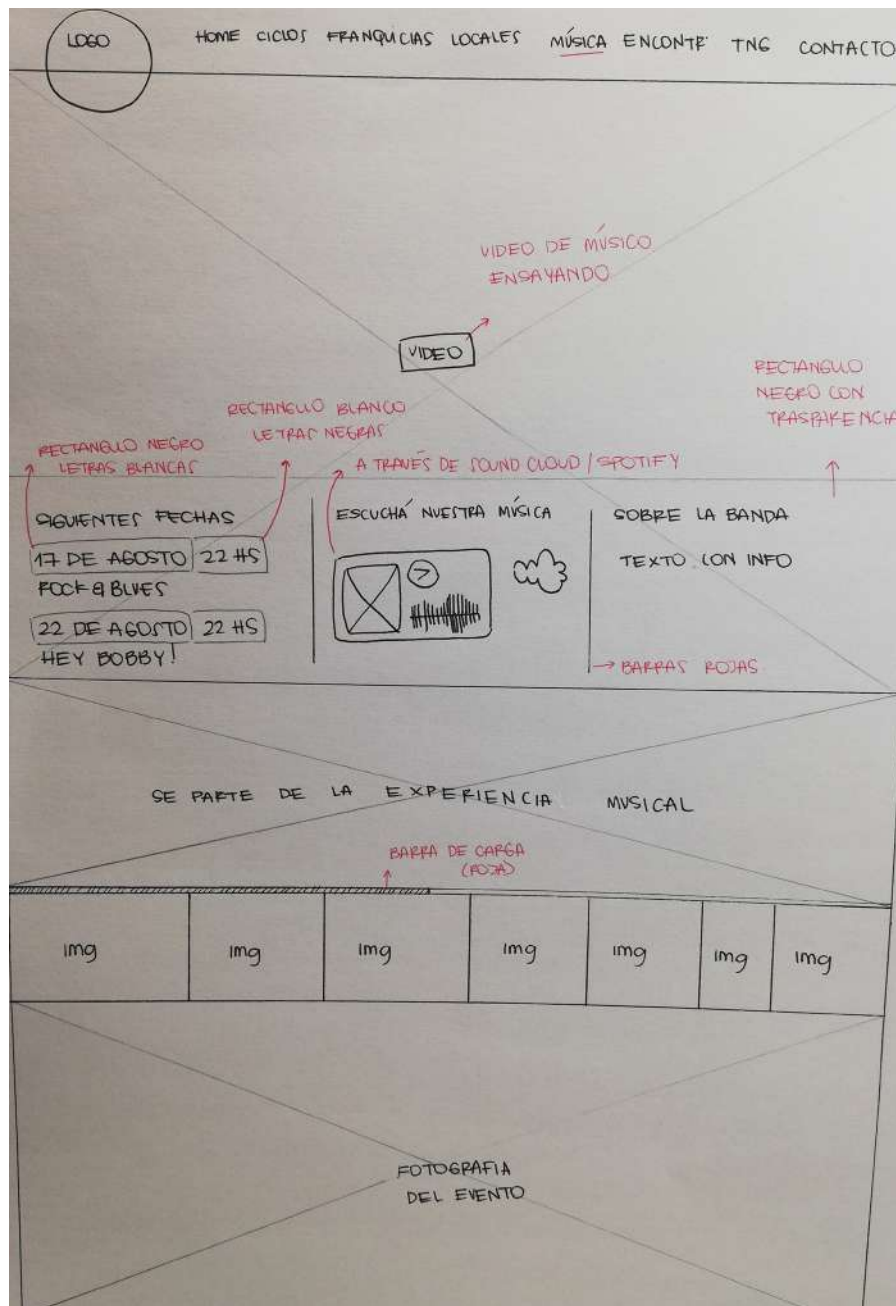 LOGO
HOME CICLOS FRANQUICIAS LOCALES MÚSICA ENCONTR' TNG CONTACTO
VIDEO DE MÚSICO
ENSAYANDO
VIDEO
RECTANGULO
NEGRO CON
TRASPARENCIA
RECTANGULO BLANCO
LETRAS NEGRAS
RECTANGULO NEGRO
LETRAS BLANCAS
A TRAVÉS DE SOUND CLOUD / SPOTIFY
SIGUIENTES FECHAS
17 DE AGOSTO 22 HS
ROCK & BLUES
22 DE AGOSTO 22 HS
HEY BOBBY!
ESCUCHÁ NUESTRA MÚSICA
SOBRE LA BANDA
TEXTO CON INFO
BARRAS ROJAS
SE PARTE DE LA EXPERIENCIA MUSICAL
BARRA DE CARGA
(ROJA)
img img img img img img img
FOTOGRAFIA
DEL EVENTO